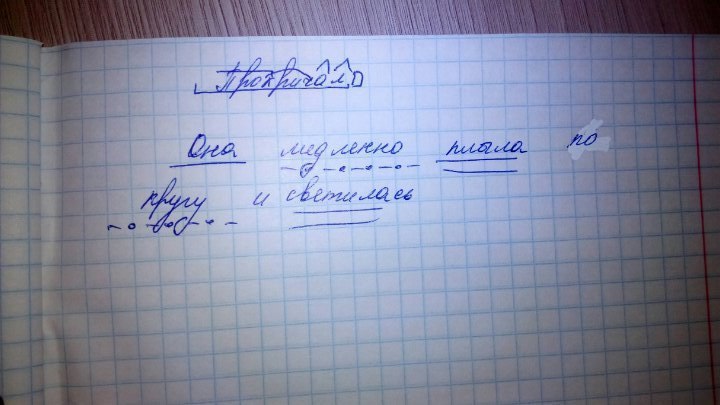 Прокричал
Она медленно плыла по
кругу и светилась